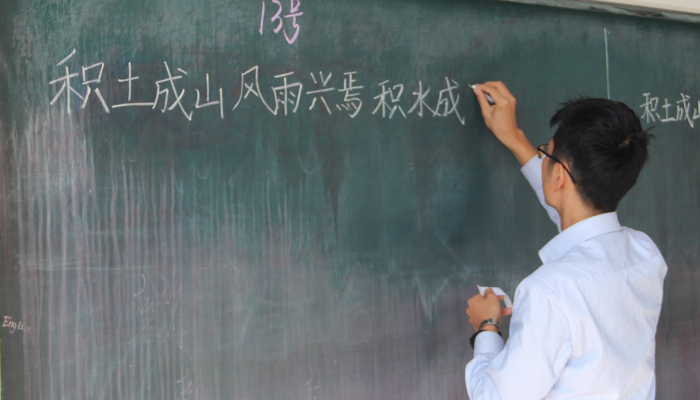 13号
积土成山风雨兴焉积水成
积土成山
English